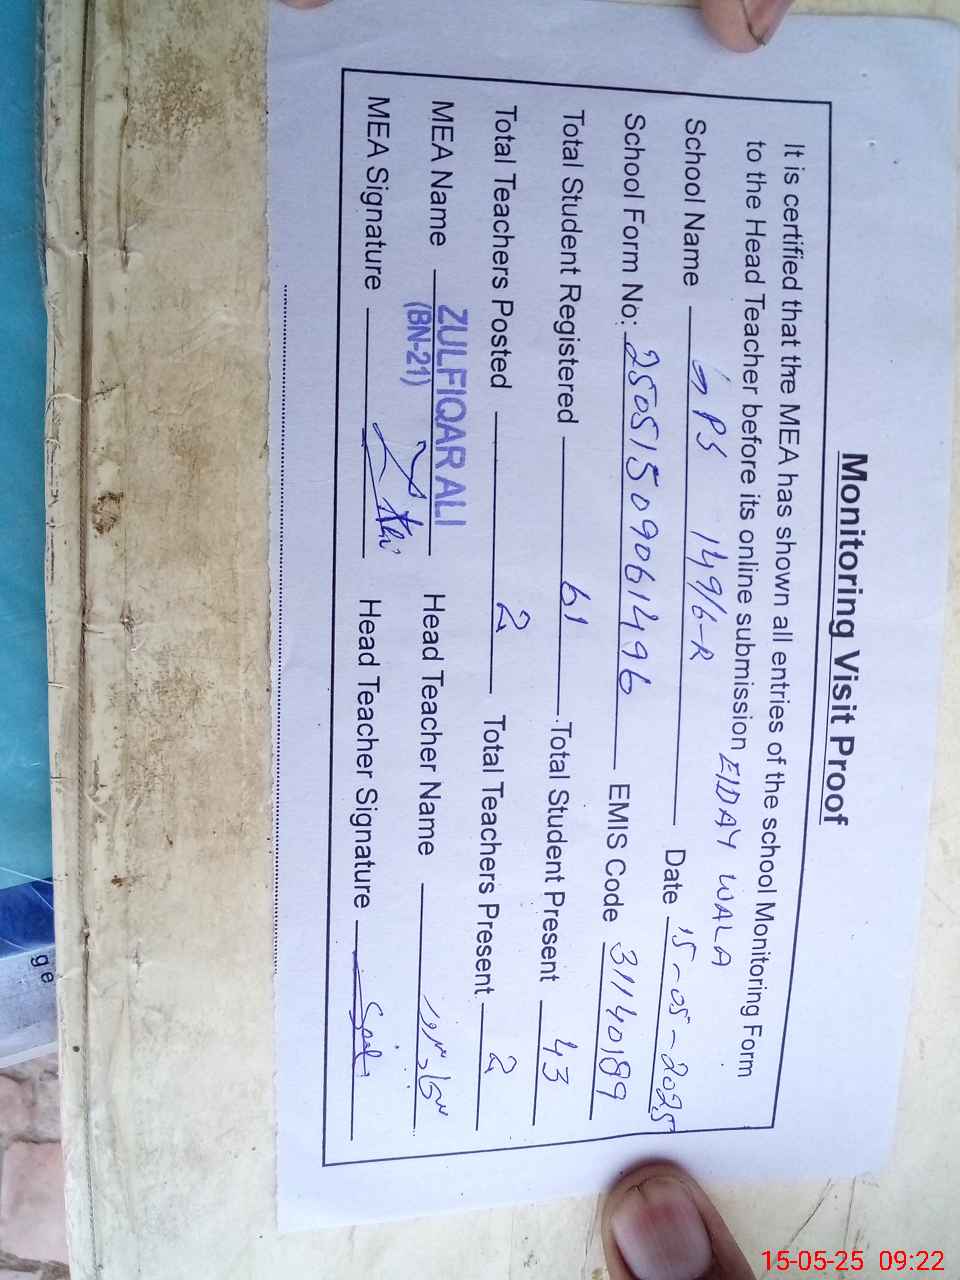 Monitoring Visit Proof
It is certified that the MEA has shown all entries of the school Monitoring Form
to the Head Teacher before its online submission EIDAY WALA
School Name GPS 149/6-R Date 15-05-2025
School Form No: 25051509061496 EMIS Code 31140189
Total Student Registered 61 Total Student Present 43
Total Teachers Posted 2 Total Teachers Present 2
MEA Name ZULFIQAR ALI Head Teacher Name
(BN-21)
MEA Signature Head Teacher Signature
ge
15-05-25 09:22